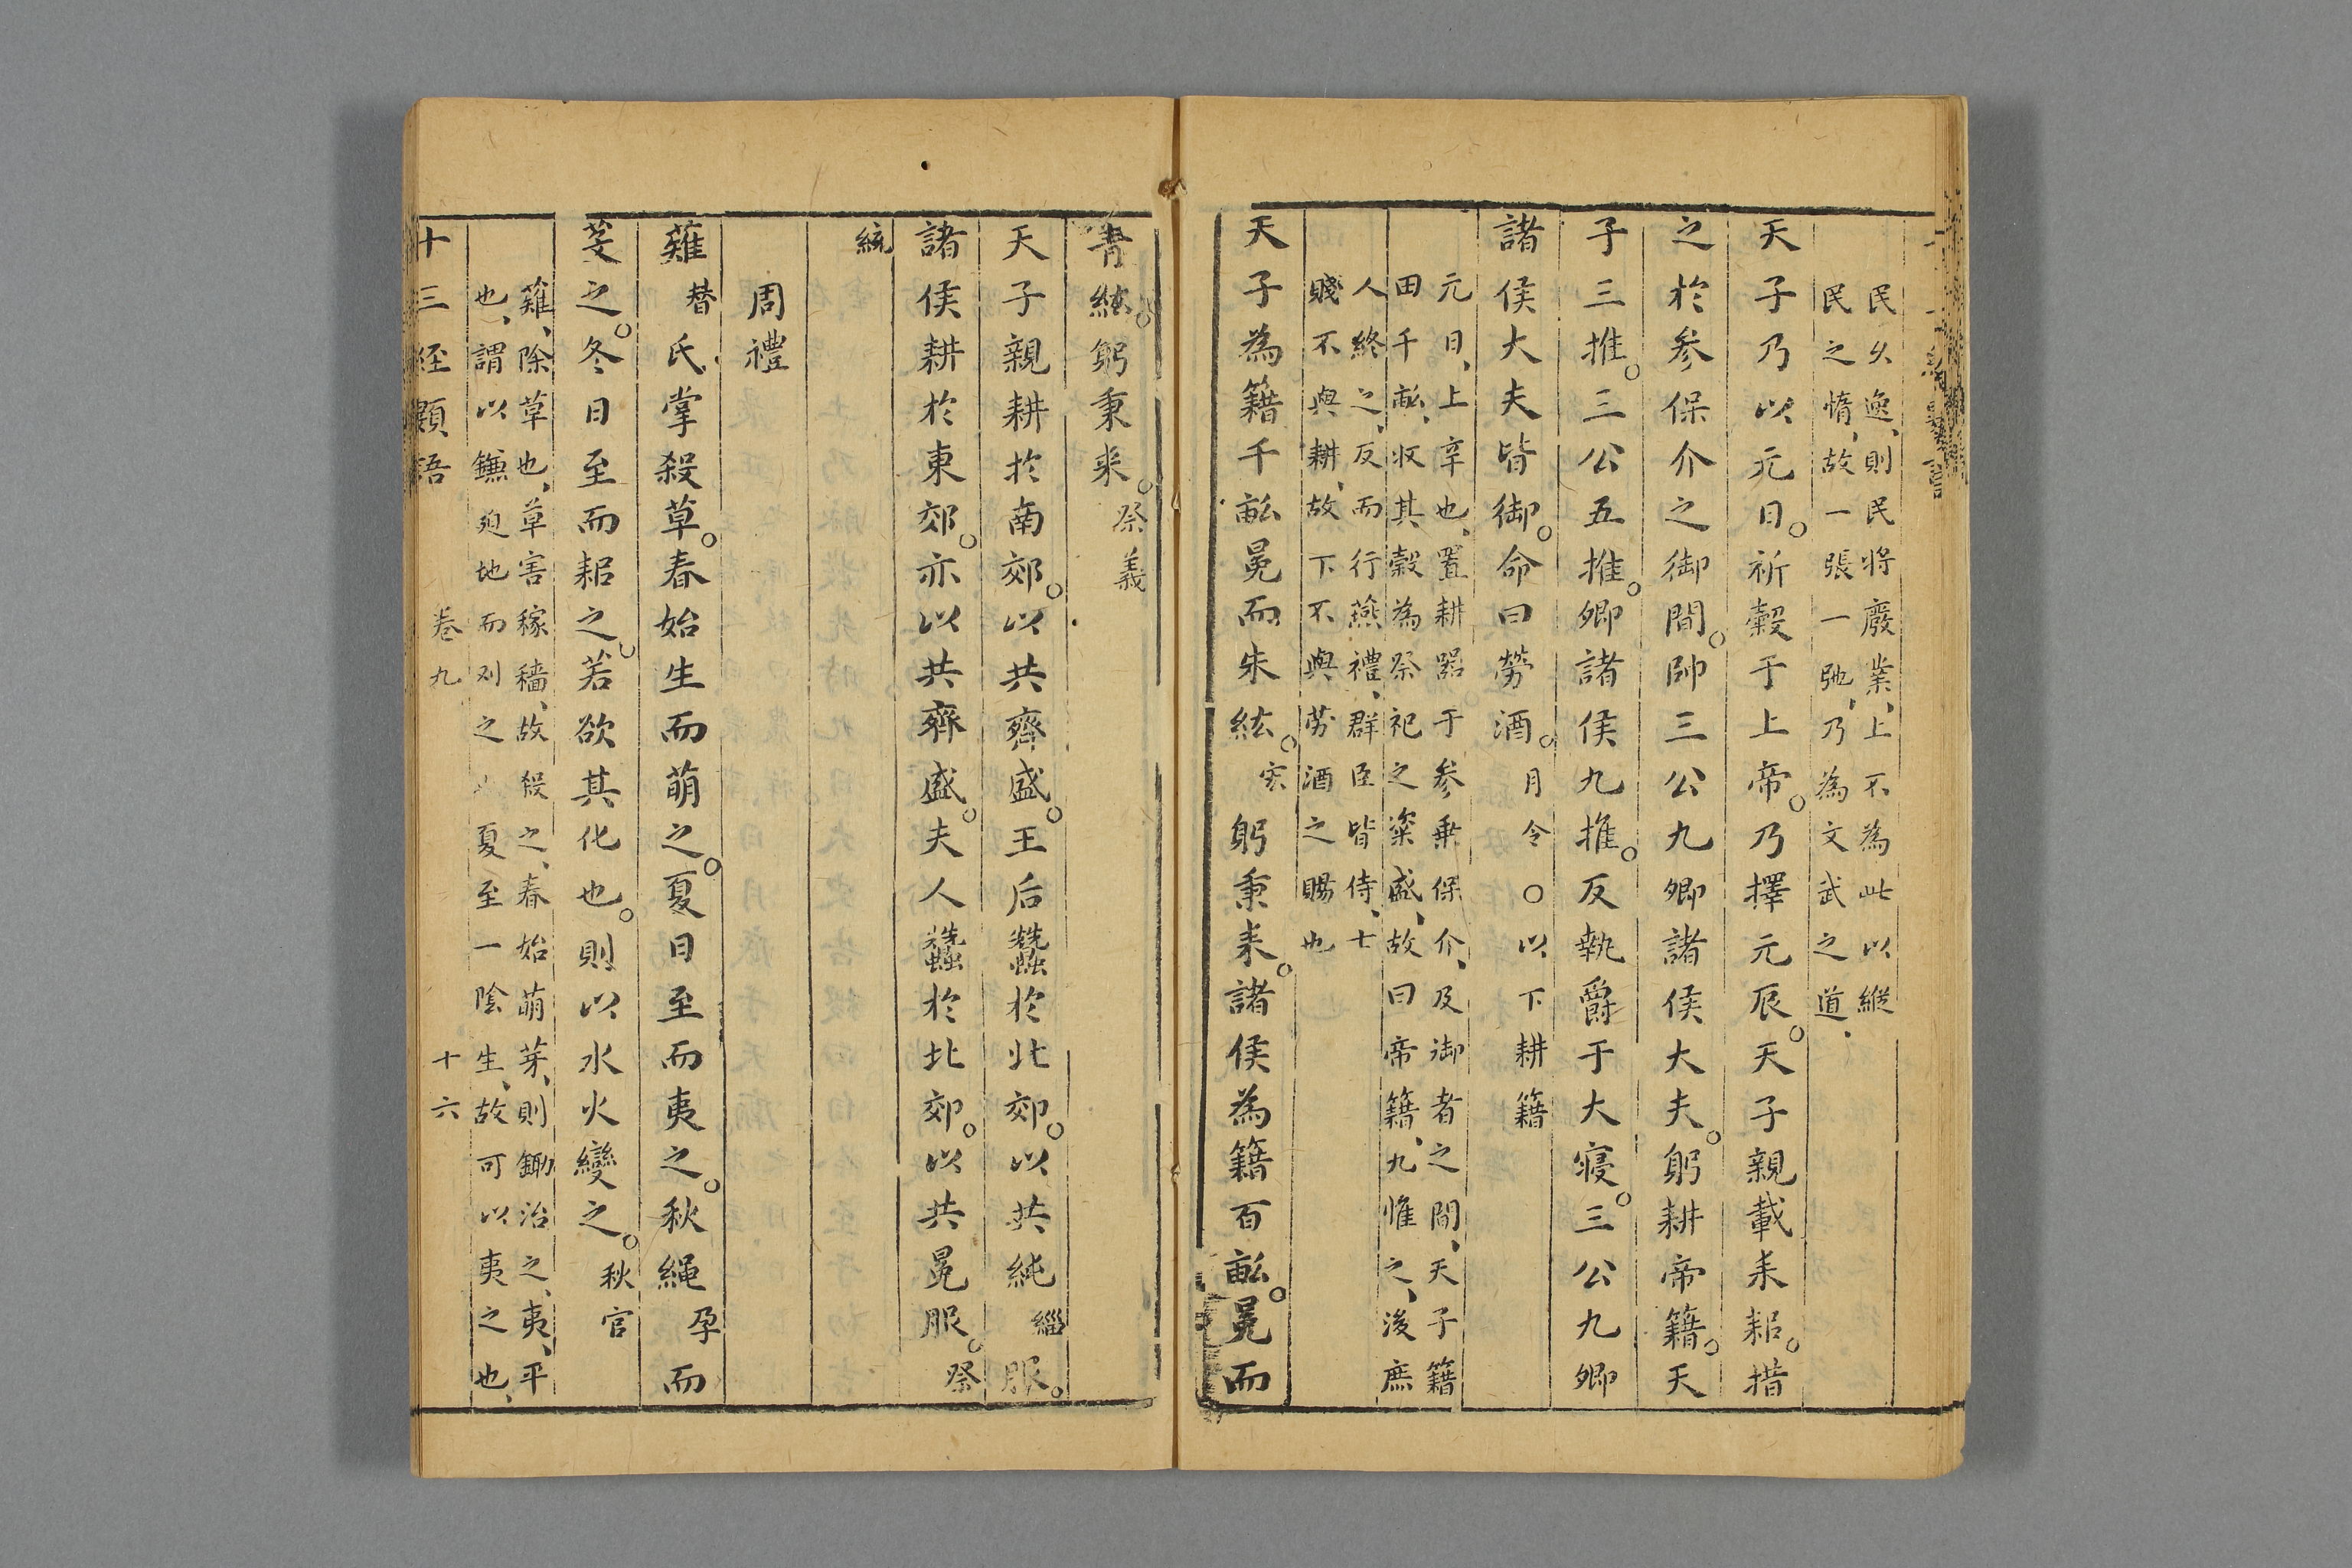 民久逸、則民將廢業、上不為此以縱
民之惰、故一張一弛、乃為文武之道、
天子乃以元日。祈穀于上帝。乃擇元辰。天子親載耒耜。措
之於参保介之御間。帥三公九卿諸侯大夫。躬耕帝籍。天
子三推。三公五推。卿諸侯九推。反執爵于大寝。三公九卿
諸侯大夫皆御。命曰勞酒。月令〇以下耕籍
元日、上辛也、置耕器于参乗保介、及御者之間、天子籍
田千畝、收其穀為祭祀之粢盛、故曰帝籍、九惟之、後庶
人終之、反而行燕禮、群臣皆侍、士
賤不與耕、故下不與勞酒之賜也
天子為籍千畝冕而朱紘。宏躬秉耒。諸侯為籍百畝。冕而
青紘。躬秉耒。祭義
天子親耕於南郊。以共齊盛。王后蠶於北郊。以共純緇服。
諸侯耕於東郊。亦以共齊盛。夫人蠶於北郊。以共冕服。祭
統
周禮
薙替氏掌殺草。春始生而萌之。夏日至而夷之。秋繩孕而
芟之。冬日至而耜之。若欲其化也。則以水火變之。秋官
薙、除草也、草害稼穡、故殺之、春始萌芽、則鋤治之、夷、平
也、謂以鐮迫地而刈之夏至一陰生、故可以夷之也、
十三經類語 卷九 十六